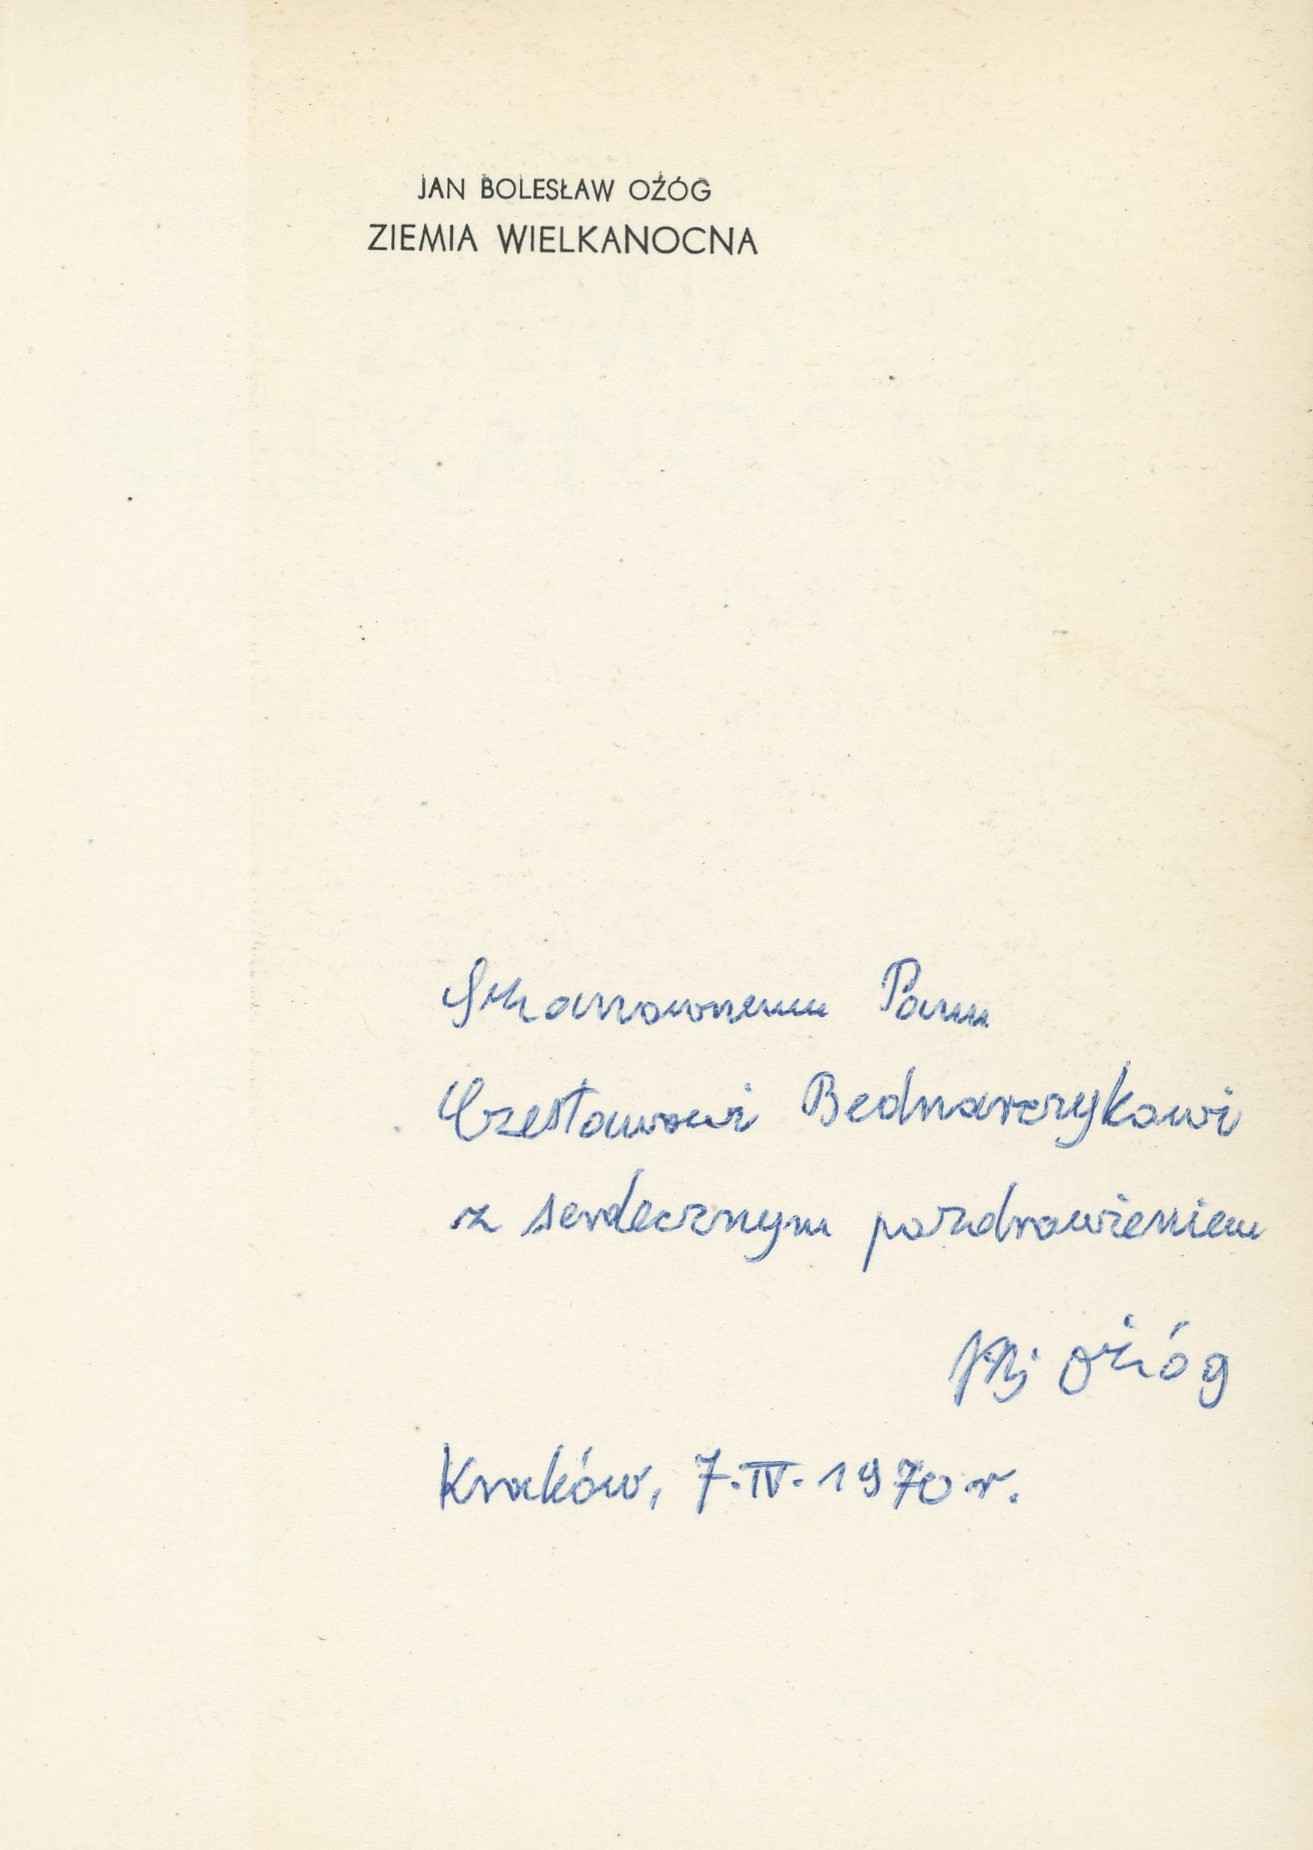 JAN BOLESŁAW OŻÓG
ZIEMIA WIELKANOCNA
Szanownemu Panu
Czesławowi Bednarczykowi
z serdecznym pozdrowieniem
JB Ożóg
Kraków, 7.IV.1970 r.